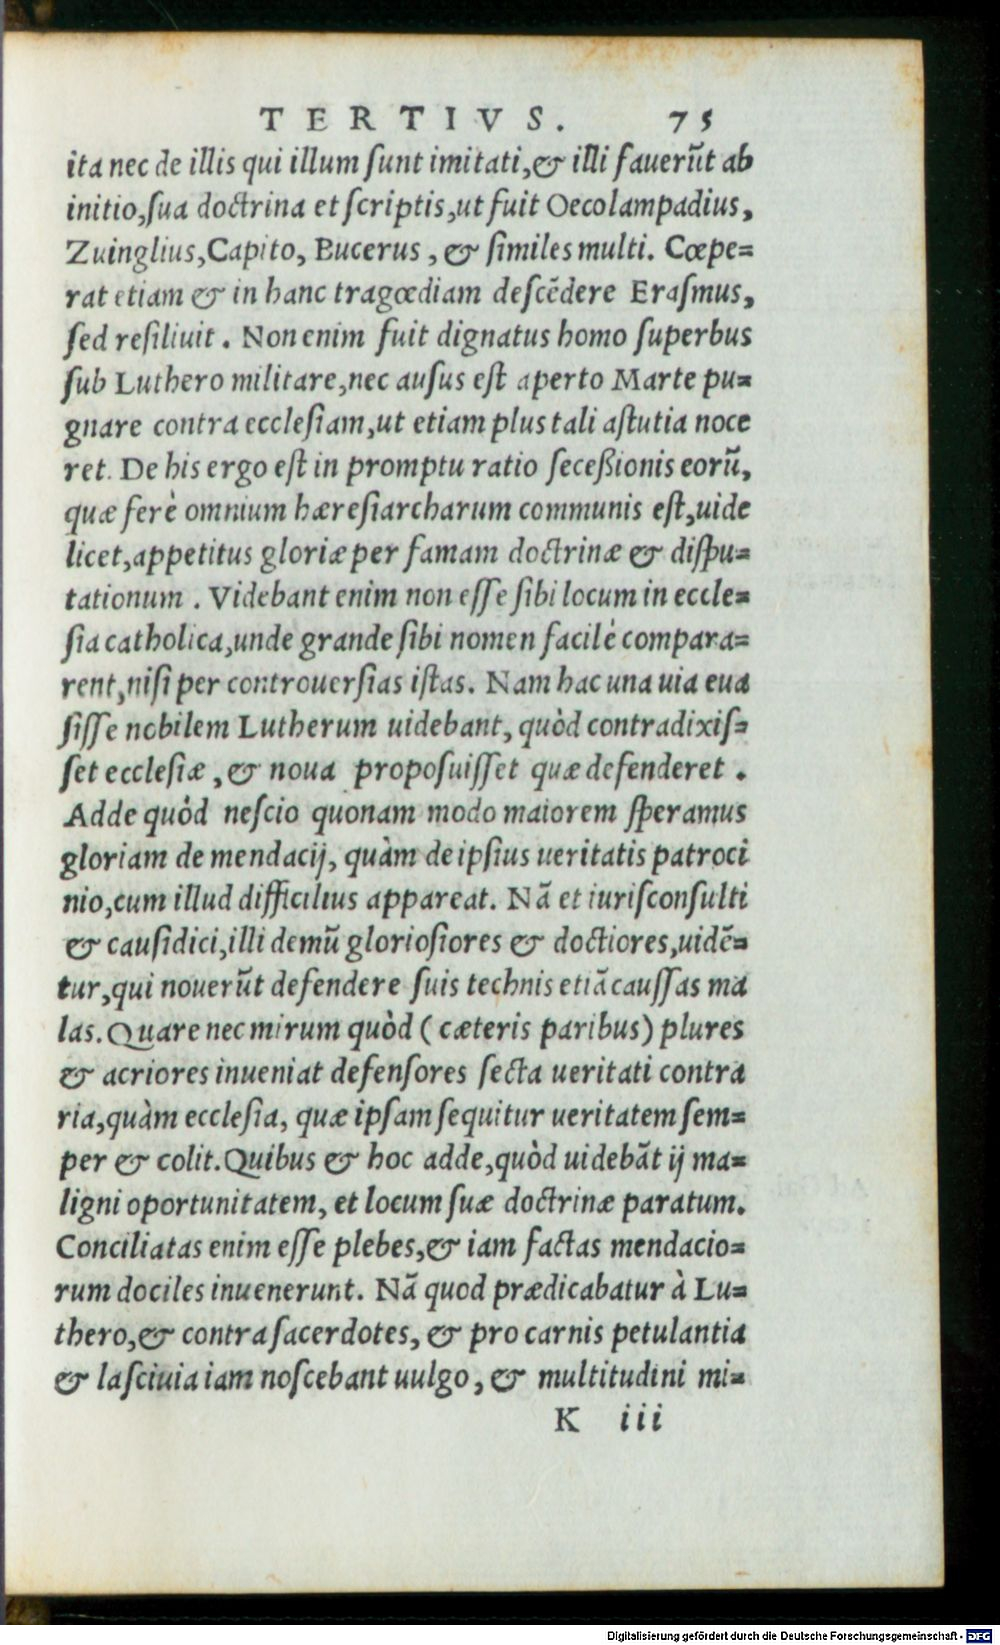 TERTIVS. 75
ita nec de illis qui illum ſunt imitati,& illi fauerūt ab
initio,ſua doctrina et ſcriptis,ut fuit Oecolampadius,
Zuinglius,Capito, Bucerus , & ſimiles multi. Cœpe=
rat etiam & in hanc tragœdiam deſcēdere Eraſmus,
ſed reſiliuit . Non enim fuit dignatus homo ſuperbus
ſub Luthero militare,nec auſus eſt aperto Marte pu=
gnare contra eccleſiam,ut etiam plus tali aſtutia noce
ret. De his ergo eſt in promptu ratio ſeceßionis eorū,
quæ ferè omnium hæreſiarcharum communis eſt,uide
licet,appetitus gloriæ per famam doctrinæ & diſpu=
tationum . Videbant enim non eſſe ſibi locum in eccle=
ſia catholica,unde grande ſibi nomen facilè compara=
rent,niſi per controuerſias iſtas. Nam hac una uia eua
ſiſſe nobilem Lutherum uidebant, quòd contradixiſ=
ſet eccleſiæ , & noua propoſuiſſet quæ defenderet .
Adde quòd neſcio quonam modo maiorem ſperamus
gloriam de mendacij, quàm de ipſius ueritatis patroci
nio,cum illud difficilius appareat. Nā et iuriſconſulti
& cauſidici,illi demū glorioſiores & doctiores,uidē=
tur,qui nouerūt defendere ſuis technis etiā cauſſas ma
las. Quare nec mirum quòd ( cæteris paribus) plures
& acriores inueniat defenſores ſecta ueritati contra
ria,quàm eccleſia, quæ ipſam ſequitur ueritatem ſem=
per & colit. Quibus & hoc adde,quòd uidebāt ij ma=
ligni oportunitatem, et locum ſuæ doctrinæ paratum.
Conciliatas enim eſſe plebes,& iam factas mendacio=
rum dociles inuenerunt. Nā quod prædicabatur à Lu=
thero,& contra ſacerdotes, & pro carnis petulantia
& laſciuia iam noſcebant uulgo , & multitudini mi=
K iii
Digitalisierung gefördert durch die Deutsche Forschungsgemeinschaft - DFG